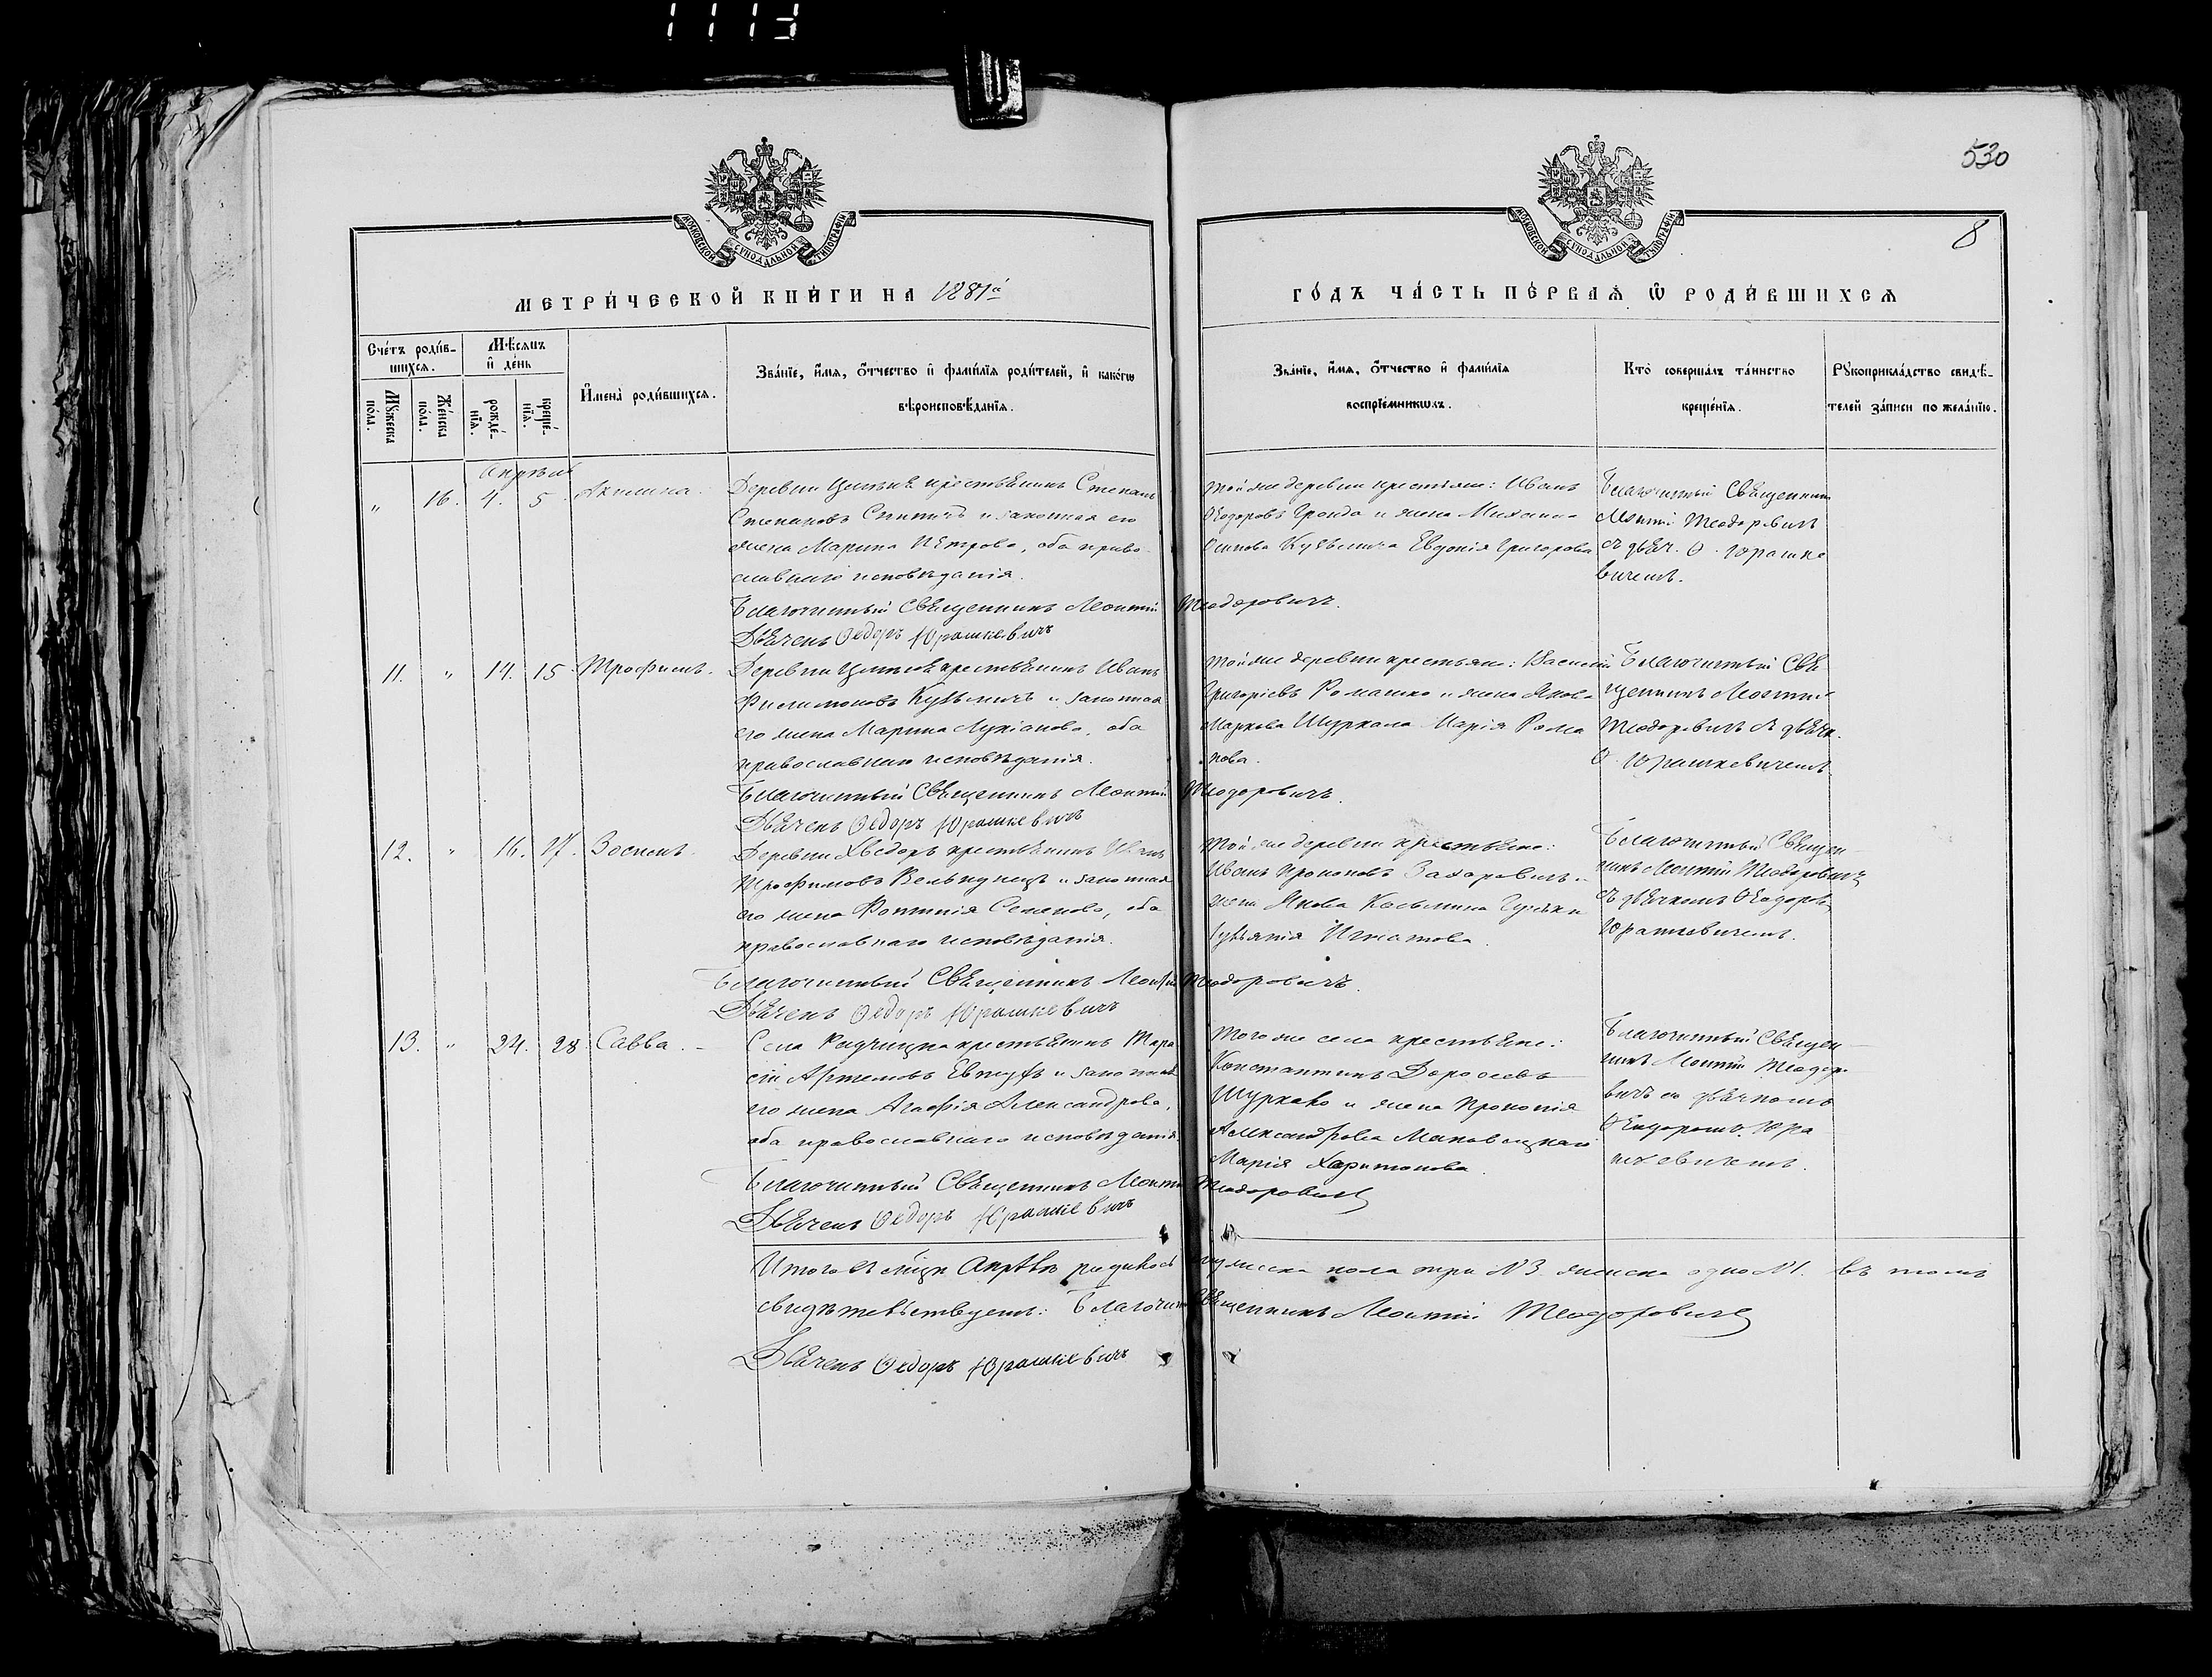 530
8
МОСКОВСКОЙ СѴНОДАЛЬНОЙ ТѴПОГРАФІИ
МОСКОВСКОЙ СѴНОДАЛЬНОЙ ТѴПОГРАФІИ
МЕТРИ́ЧЕСКОЙ КНИ́ГИ НА 1881й
ГО́ДЪ ЧА́СТЬ ПЕ́РВАѦ Ѿ РОДИ́ВШИХСѦ
Счéтъ роди́в-
шихсѧ.
Мꙋ́жеска пóла.
Жéнска пóла.
Мѣ́сѧцъ
и҆ дéнь
рождé-
нїѧ.
крещé-
нїѧ.
И҆менà роди́вшихсѧ.
Звáнїе, и҆́мѧ, ѻ҆́тчество и҆ фамѝлїѧ роди́телей, и҆ какóгѡ
вѣроисповѣ́данїѧ.
Звáнїе, и҆́мѧ, ѻ҆́тчество и҆ фамѝлїѧ
воспрїéмникѡвъ.
Ктò совершáлъ тáинство
крещéнїѧ.
Рꙋкоприклáдство свидѣ́-
телей зáписи по желáнїю.
Апрѣль
" 16. 4. 5. Акилина.
Деревни крестьянинъ Степанъ
Степановъ и законная его
жена Марина Петрова, оба право-
славнаго исповѣданія.
Той же деревни крестьяне: Иванъ
Ѳеодоровъ и жена Михаила
Осипова Евдокія Григорова
Благочинный Священникъ
Леонтій Теодоровичъ
съ дьяч. Ѳ. Юрашке
вичемъ.
Благочинный Священникъ Леонтій Теодоровичъ.
Дьячекъ Ѳедоръ Юрашкевичъ
11. " 14. 15. Трофимъ.
Деревни крестьянинъ Иванъ
Филимоновъ и законная
его жена Марина Лукіанова, оба
православнаго исповѣданія.
Той же деревни крестьяне: Василій
Григоріевъ Ромашко и жена Якова
Маркова Шуркала Марія Рома
нова.
Благочинный Свя
щенникъ Леонтій
Теодоровичъ съ дьячк.
Ѳ. Юрашкевичемъ
Благочинный Священникъ Леонтій Теодоровичъ.
Дьячекъ Ѳедоръ Юрашкевичъ
12. " 16. 17. Зосимъ.
Деревни крестьянинъ Иванъ
Трофимовъ и законная
его жена Фотинія Семенова, оба
православнаго исповѣданія.
Той же деревни крестьяне:
Иванъ Прокоповъ Захаровичъ и
жена Якова Косьмина
Игнатова.
Благочинный Священ
никъ Леонтій Теодоровичъ
съ дьячкомъ Ѳеодоромъ
Юрашкевичемъ.
Благочинный Священникъ Леонтій Теодоровичъ.
Дьячекъ Ѳедоръ Юрашкевичъ
13. " 24. 28. Савва.
Села крестьянинъ Тара
сій Артемовъ и законная
его жена Агафія Александрова,
оба православнаго исповѣданія.
Того же села крестьяне:
Константинъ
Шуркало и жена Прокопія
Александрова
Марія Харитонова.
Благочинный Священ
никъ Леонтій Теодоро
вичъ съ дьячкомъ
Ѳеодоромъ Юра
шкевичемъ.
Благочинный Священникъ Леонтій Теодоровичъ
Дьячекъ Ѳедоръ Юрашкевичъ
Итого въ мѣцѣ Апрѣлѣ родилось мужеска пола три №3. женска одно №1. въ томъ
свидѣтельствуемъ: Благочин Священникъ Леонтій Теодоровичъ
Дьячекъ Ѳедоръ Юрашкевичъ